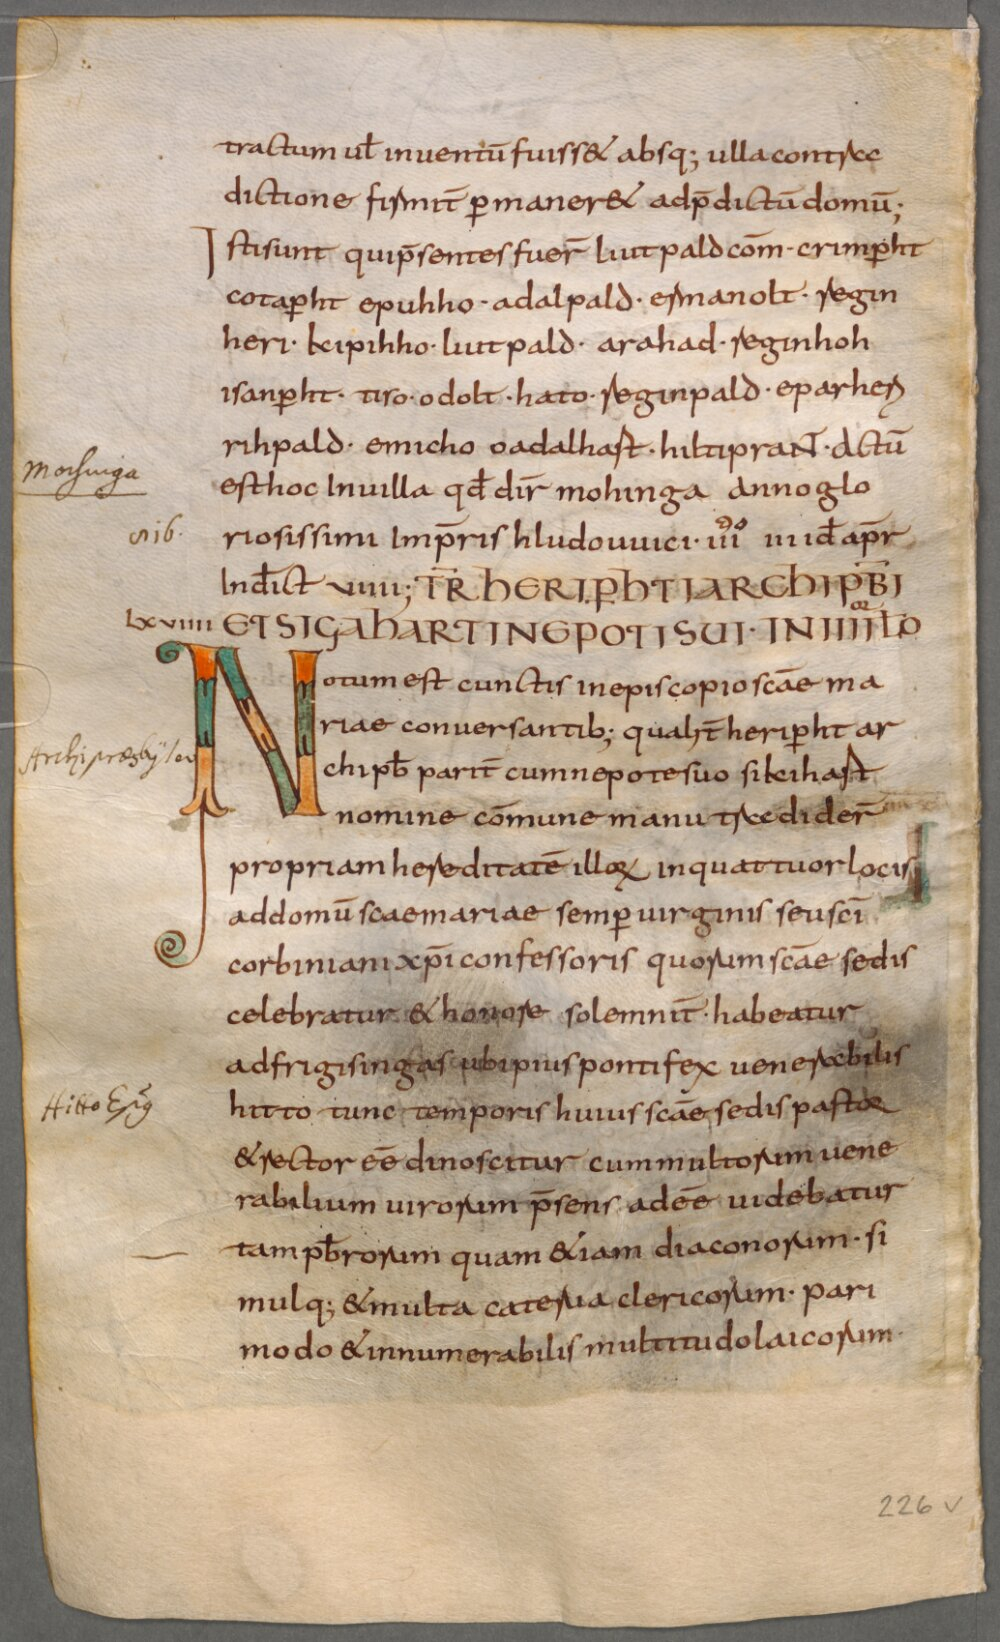 tractum ul̄ inuentū fuiss& absq; ulla contra
dictione firmit̄ p̄maner& adp̄dictū domū;
Isti sunt qui p̄sentes fuer̄ liutpald com̄· crimp̄ht
cotap̄ht epuhho· adalpald· ermanolt· regin
heri· kipihho· liutpald· arahad· reginhoh
isanp̄ht· tiso· odolt· hato· reginpald· eparheri
rihpald· emicho oadalhast· hiltiprant· Actū
Mochinga
est hoc In uilla qd̄ dir̄ mohinga anno glo
sib·
riosissimi Imp̄ris hludouuici· uiiii iii id̄ apr̄
Ind̄ict viiii; TR̄ HERIP̄HTI ARCHIPB̄I
lxviiii ET SIGAHARTI NEPOTI SUI· IN IIIIor LO
Notum est cunctis in episcopio scāe ma
riae conuersantib; qualit̄ herip̄ht ar
Archipresbyter
chipb̄ parit̄ cum nepote suo sikihast
nomine com̄une manu tradider̄
propriam hereditatē illoꝝ in quattuor locis
ad domū scae mariae semp̄ uirginis seu scī
corbiniani xp̄i confessoris quorum scāe sedis
celebratur & honore solemnit̄· habeatur
ad frigisingas ubi pius pontifex uenerabilis
Hitto Ep̄g
hitto tunc temporis huius scāe sedis pastor
& rector eē dinoscitur cum multorum uene
rabilium uirorum p̄sens adeē uidebatur
tam pb̄rorum quam &iam diaconorum· si
mulq; & multa caterua clericorum· pari
modo & innumerabilis multitudo laicorum·
226 v